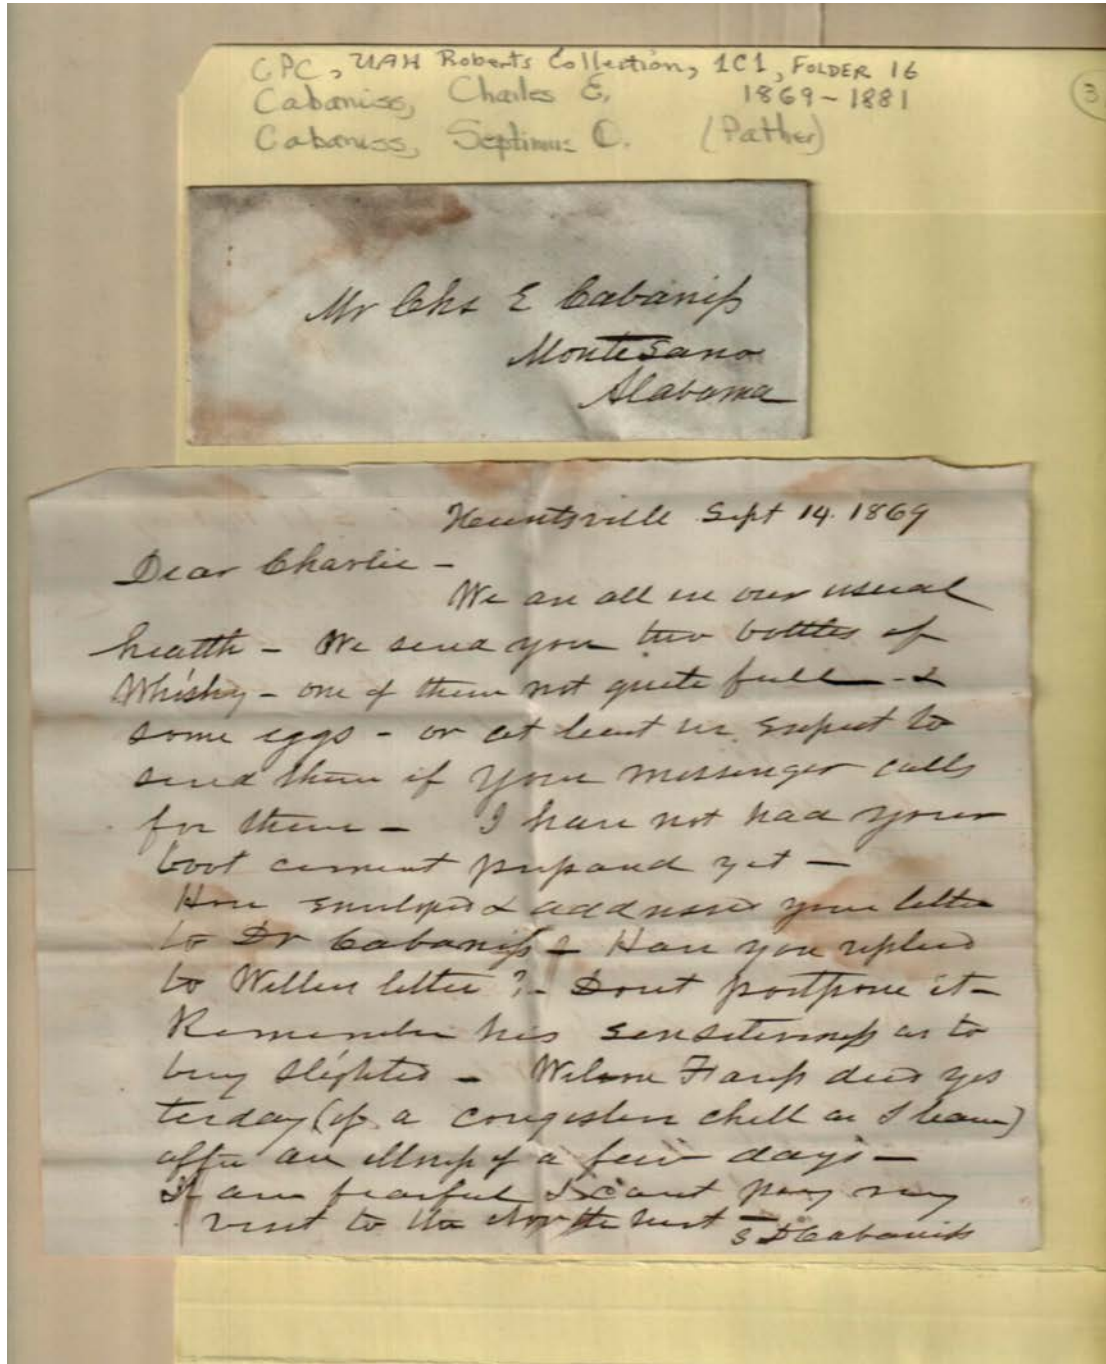 CPC, UAH Roberts Collection, 1C1, FOLDER 16
Cabaniss, Charles E. 1869-1881
Cabaniss, Septimus D. (Father)
3
Mr Chs E Cabaniss
Montesano
Alabama
Huntsville Sept 14. 1869
Dear Charlie -
We are all in our usual
health - We send you two bottles of
Whisky - one of them not quite full - &
some eggs - or at least we expect to
send them if your messenger calls
for them - I have not had your
boot cement prepared yet -
Have enveloped & addressed your letter
to Dr Cabaniss - Have you replied
to letter? - Dont postpone it -
Remember his sensitiveness as to
being slighted - Wilson died yes
terday (of a congestive chill as I learn)
after an illness of a few days -
I am fearful I cant pay my
visit to the
S D Cabaniss